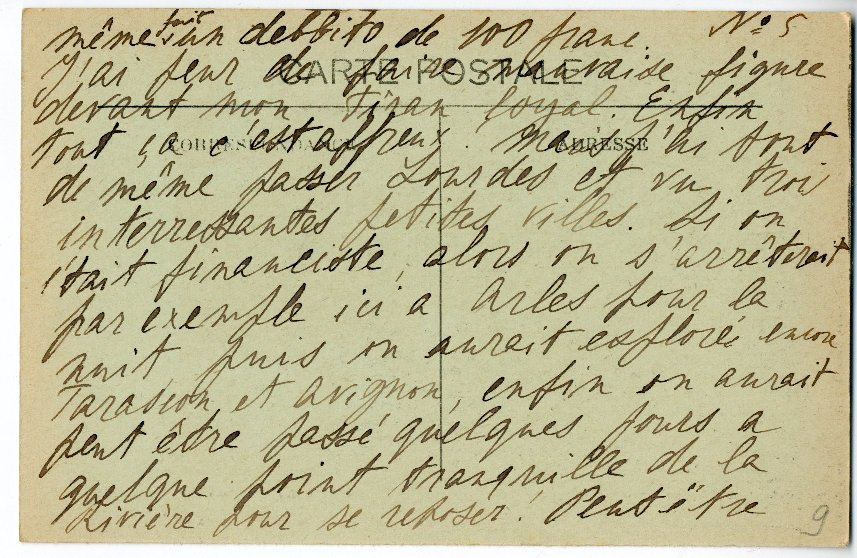 même fait un debbito de 100 franc. No 5
CARTE POSTALE
J'ai peur de faire mauvaise figure
devant mon tiran loyal. Enfin
CORRESPONDANCE ADRESSE
tout ça c'est affreux. Mais j'ai tout
de même passer Lourdes et vu troi
interressantes petites villes. Si on
était financiste, alors on s'arrêterait
par exemple ici a Arles pour la
nuit puis on aurait esploré encore
Tarascon et Avignon, enfin on aurait
peut être passé quelques jours a
quelque point tranquille de la
Rivière pour se reposer! Peut être
9